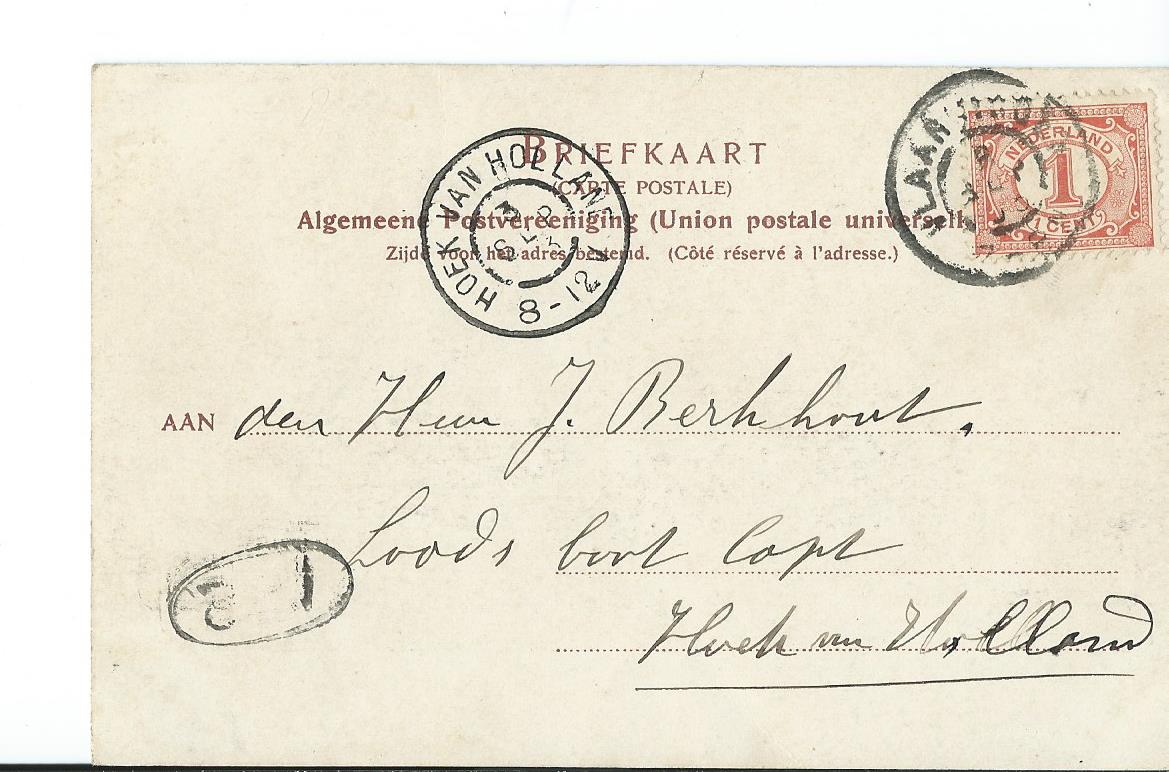 BRIEFKAART
(CARTE POSTALE)
Algemeene Postvereeniging (Union postale universelle
Zijde voor het adres bestemd. (Côté réservé à l'adresse.)
HOEK VAN HOLLAND
8-12V
NEDERLAND
1
1 CENT
AAN den Heer J. Berkhout,
Loods boot Capt
Hoek van Holland